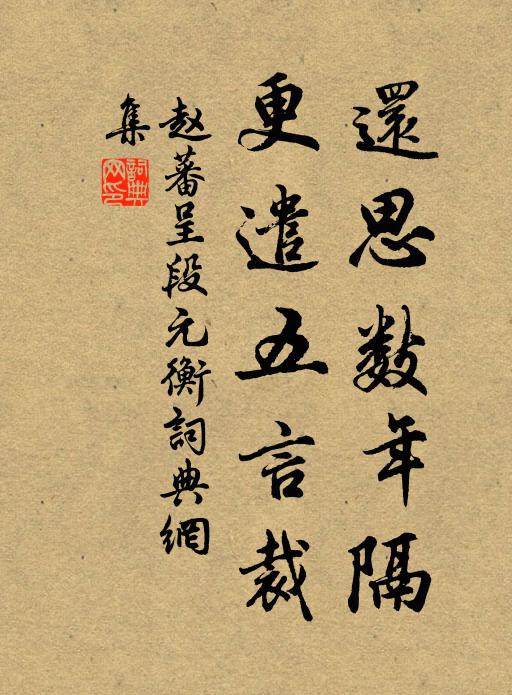 還思数年隔
更遣五言裁
赵蕃呈段元衡詞典網
集
詞典
网印